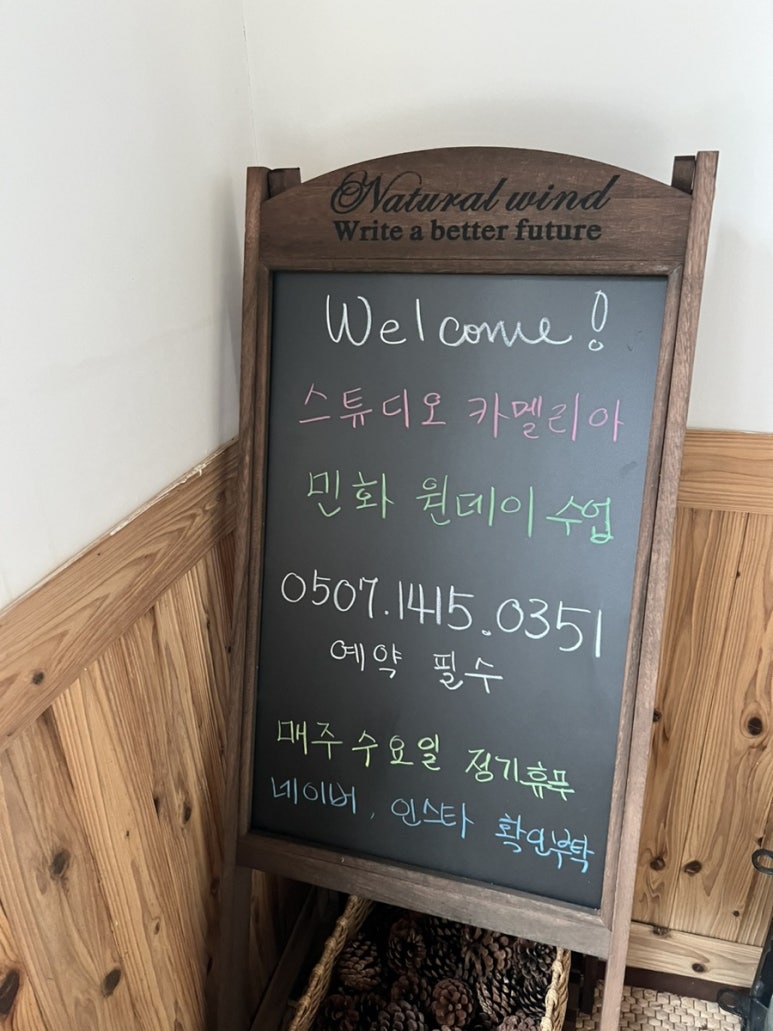 Natural wind
Write a better future
Welcome!
스튜디오 카멜리아
민화 원데이 수업
0507.1415.0351
예약 필수
매주 수요일 정기휴무
네이버, 인스타 확인부탁